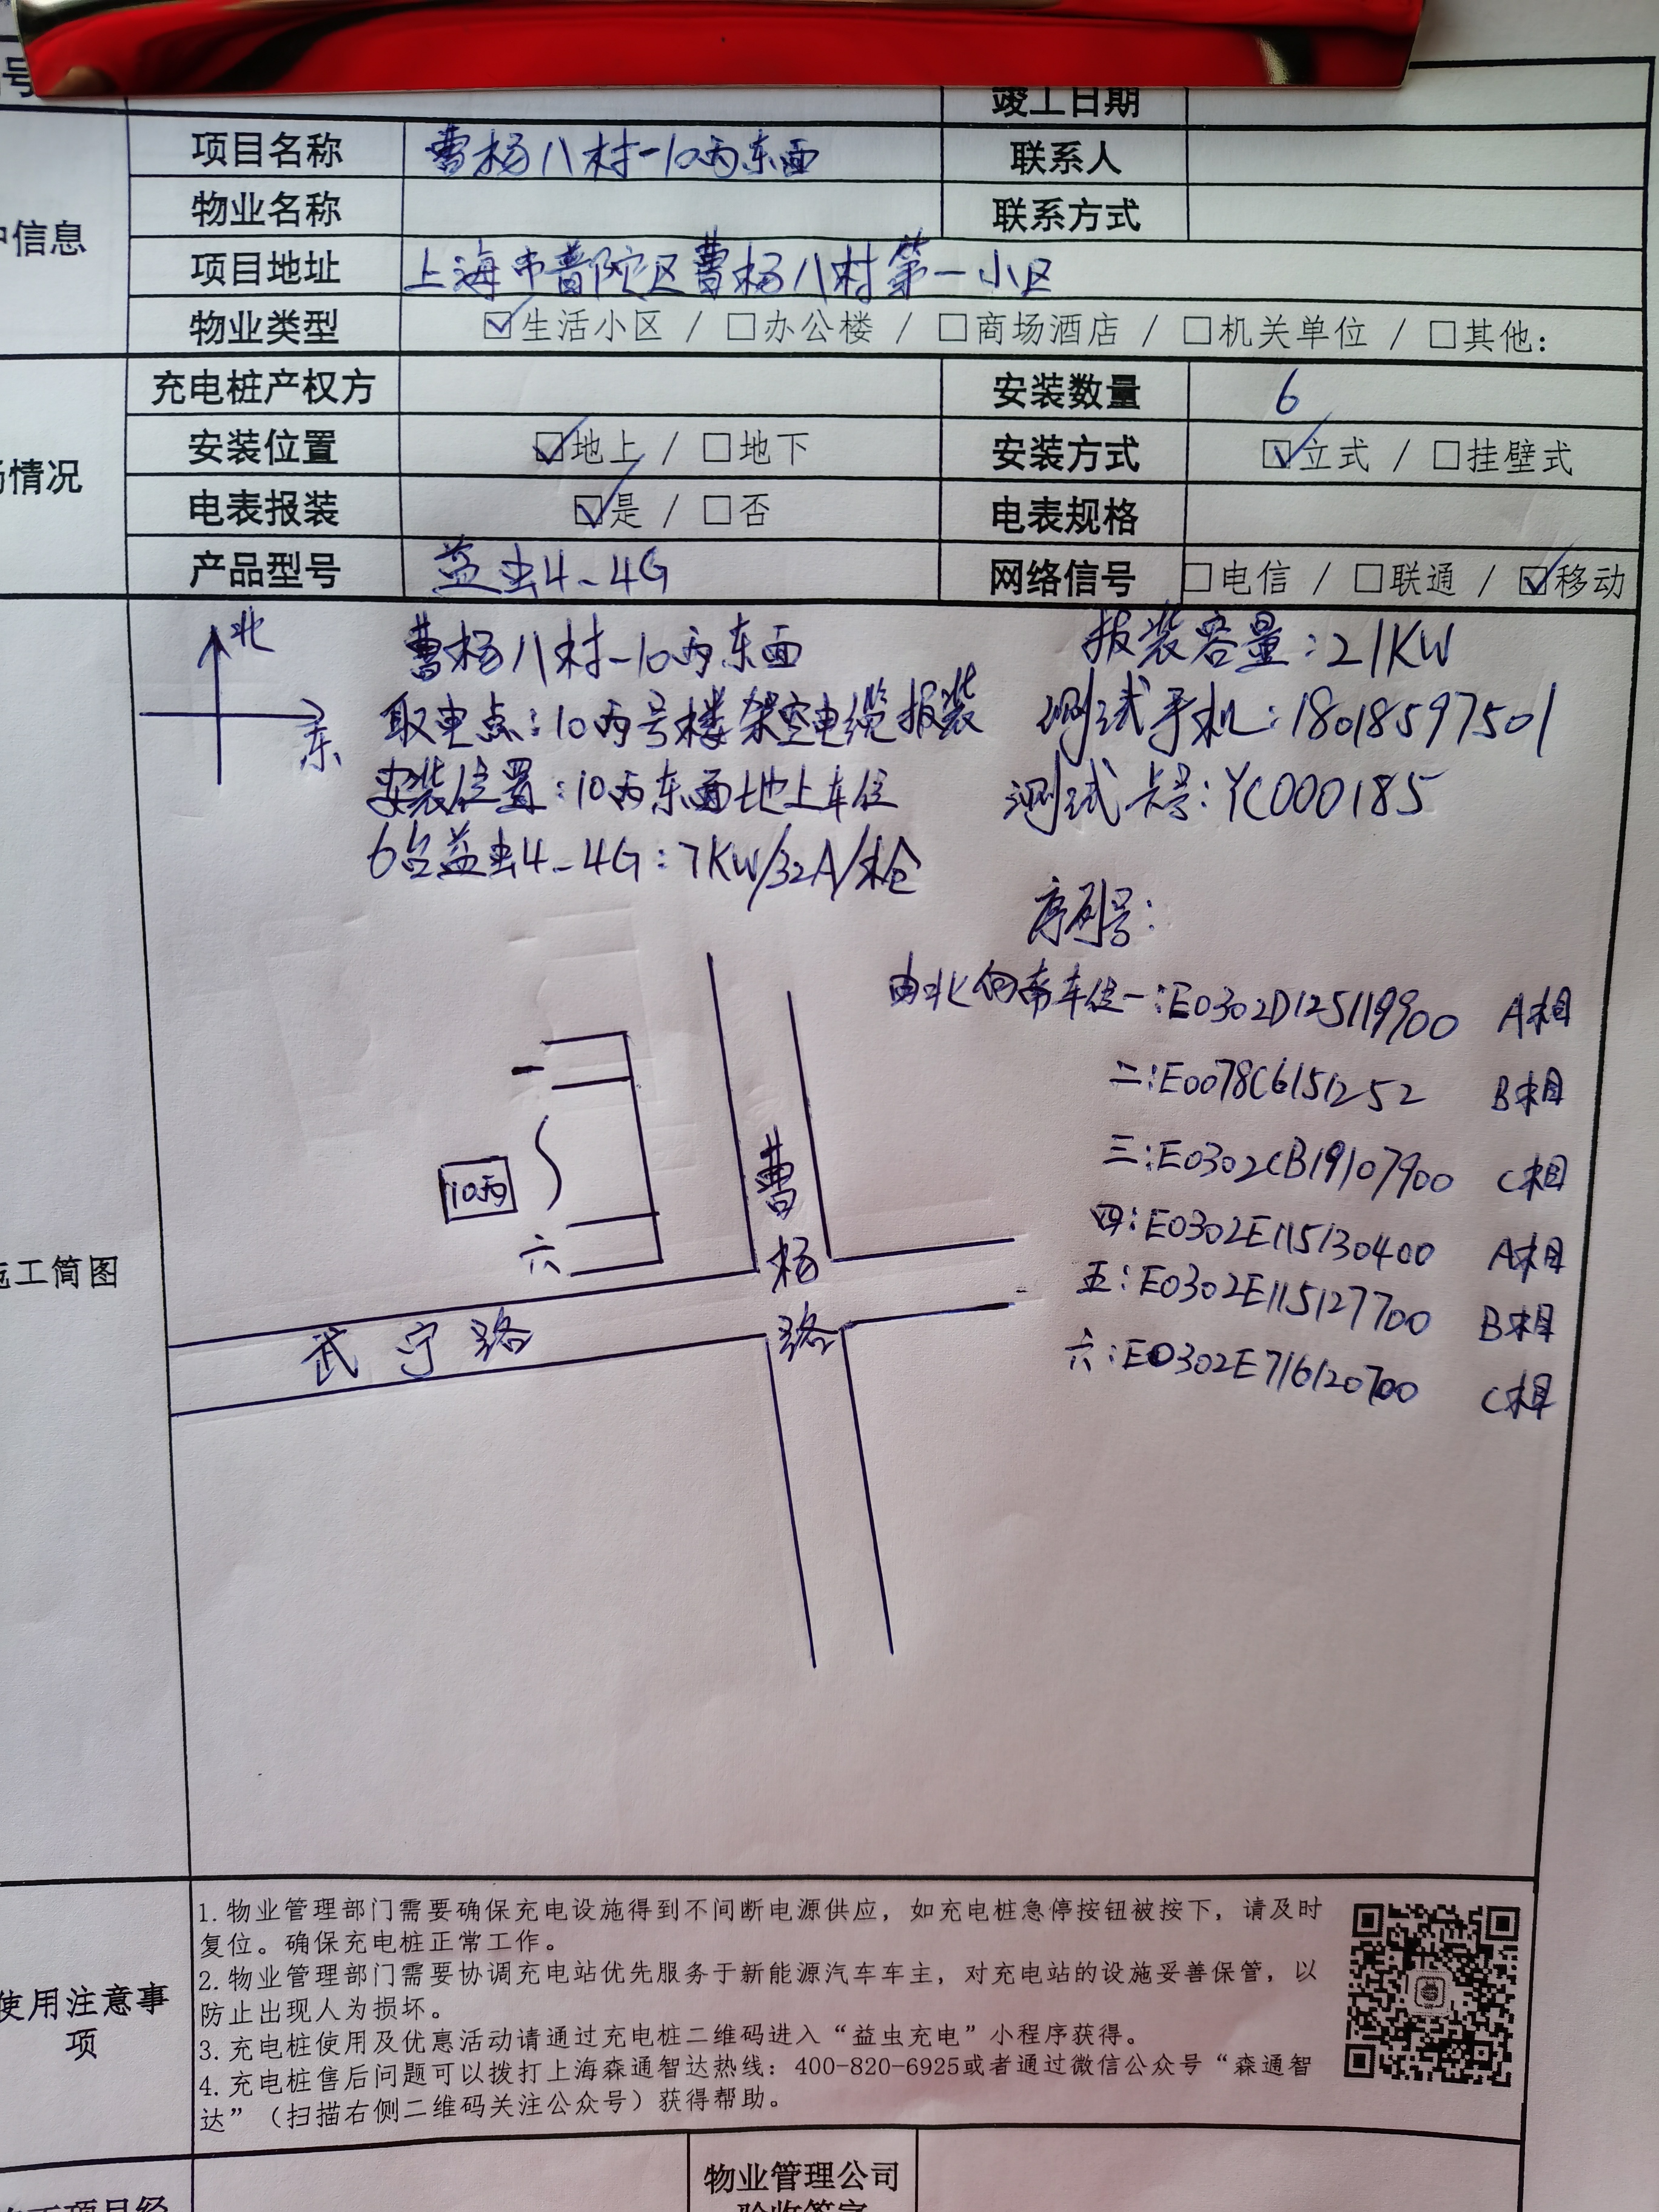 号 竣工日期
项目名称 曹杨八村-10丙东面 联系人
物业名称 联系方式
户信息
项目地址 上海市普陀区曹杨八村第一小区
物业类型 ☑生活小区 / □办公楼 / □商场酒店 / □机关单位 / □其他:
充电桩产权方 安装数量 6
安装位置 ☑地上 / □地下 安装方式 ☑立式 / □挂壁式
情况
电表报装 ☑是 / □否 电表规格
产品型号 益虫4-4G 网络信号 □电信 / □联通 / ☑移动
北
东
曹杨八村-10丙东面
取电点:10丙号楼架空电缆报装
安装位置:10丙东面地上车位
6台益虫4-4G:7KW/32A/枪
报装容量:21KW
测试手机:18018597501
测试卡号:YC000185
序列号:
由北向南车位一:E0302D125119900 A相
二:E0078C6151252 B相
三:E0302CB19107900 C相
四:E0302E115130400 A相
五:E0302E115127700 B相
六:E0302E716120700 C相
一
10丙
六
曹杨路
武宁路
施工简图
使用注意事
项
1.物业管理部门需要确保充电设施得到不间断电源供应，如充电桩急停按钮被按下，请及时
复位。确保充电桩正常工作。
2.物业管理部门需要协调充电站优先服务于新能源汽车车主，对充电站的设施妥善保管，以
防止出现人为损坏。
3.充电桩使用及优惠活动请通过充电桩二维码进入“益虫充电”小程序获得。
4.充电桩售后问题可以拨打上海森通智达热线：400-820-6925或者通过微信公众号“森通智
达”（扫描右侧二维码关注公众号）获得帮助。
物业管理公司
验收签字
项目经